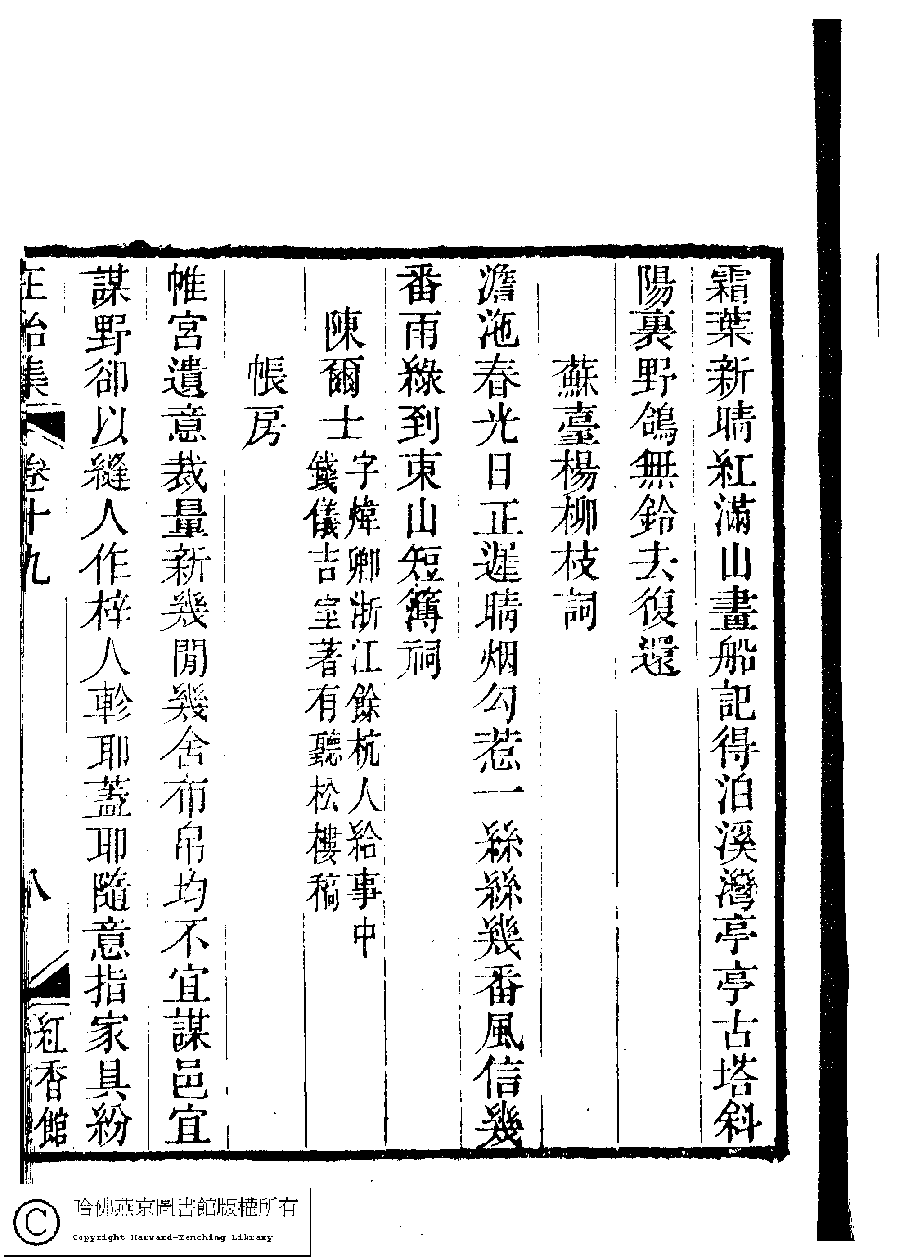 霜葉新晴紅滿山畫船記得泊溪灣亭亭古塔斜
陽裏野鴿無鈴去復還
蘇臺楊柳枝詞
澹沲春光日正遲晴烟勾惹一絲絲幾番風信幾
番雨綠到東山短簿祠
陳爾士
字煒卿浙江餘杭人給事中
錢儀吉室著有聽松樓稿
帳房
帷宮遺意裁量新幾閒幾舍布帛均不宜謀邑宜
謀野卻以縫人作梓人軫耶蓋耶隨意指家具紛
正始集
卷十九
八
紅香館
哈佛燕京圖書館版權所有
Copyright Harvard-Yenching Library